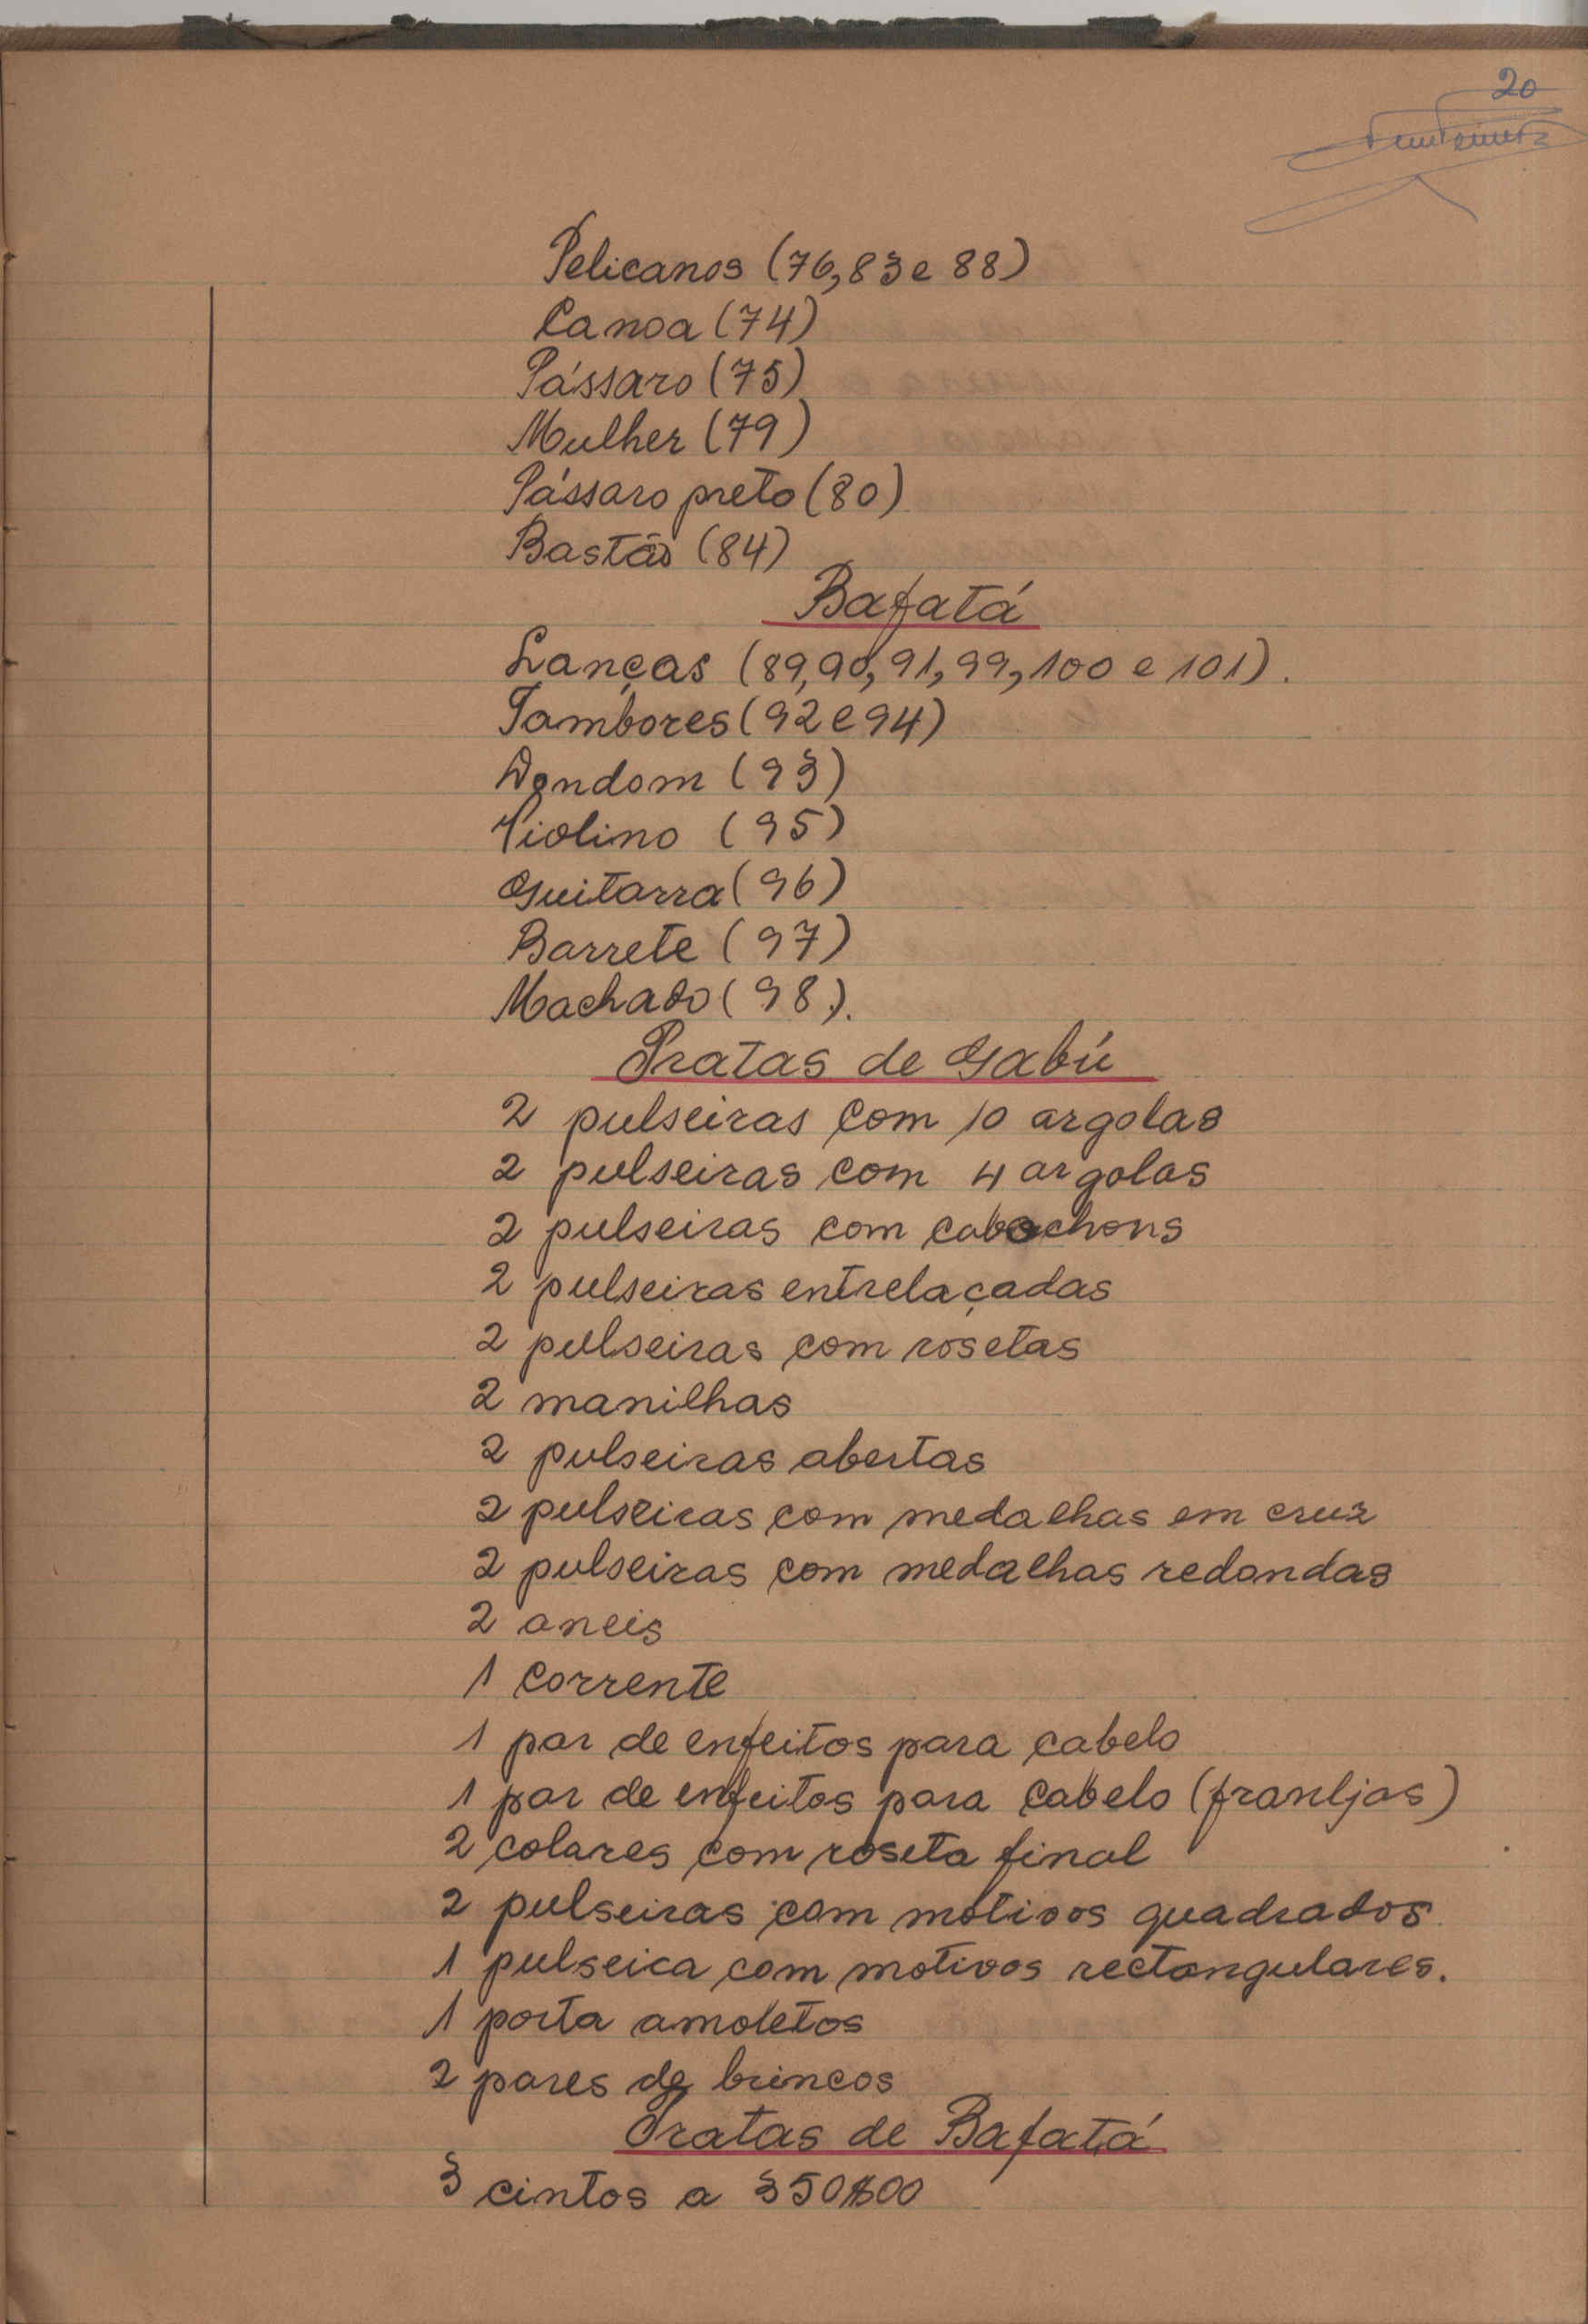 20
Pelicanos (76,83 e 88)
Canoa (74)
Pássaro (75)
Mulher (79)
Pássaro preto (80)
Bastão (84)
Bafatá
Lanças (89,90,91,99,100 e 101).
Tambores (92 e 94)
Dondom (93)
Violino (95)
Guitarra (96)
Barrete (97)
Machado (98).
Pratas de Gabú
2 pulseiras com 10 argolas
2 pulseiras com 4 argolas
2 pulseiras com cabochons
2 pulseiras entrelaçadas
2 pulseiras com rosetas
2 manilhas
2 pulseiras abertas
2 pulseiras com medalhas em cruz
2 pulseiras com medalhas redondas
2 aneis
1 corrente
1 par de enfeitos para cabelo
1 par de enfeitos para cabelo (franljas)
2 colares com roseta final
2 pulseiras com motivos quadrados
1 pulseira com motivos rectangulares.
1 porta amoletos
2 pares de brincos
Pratas de Bafatá
3 cintos a 350$00